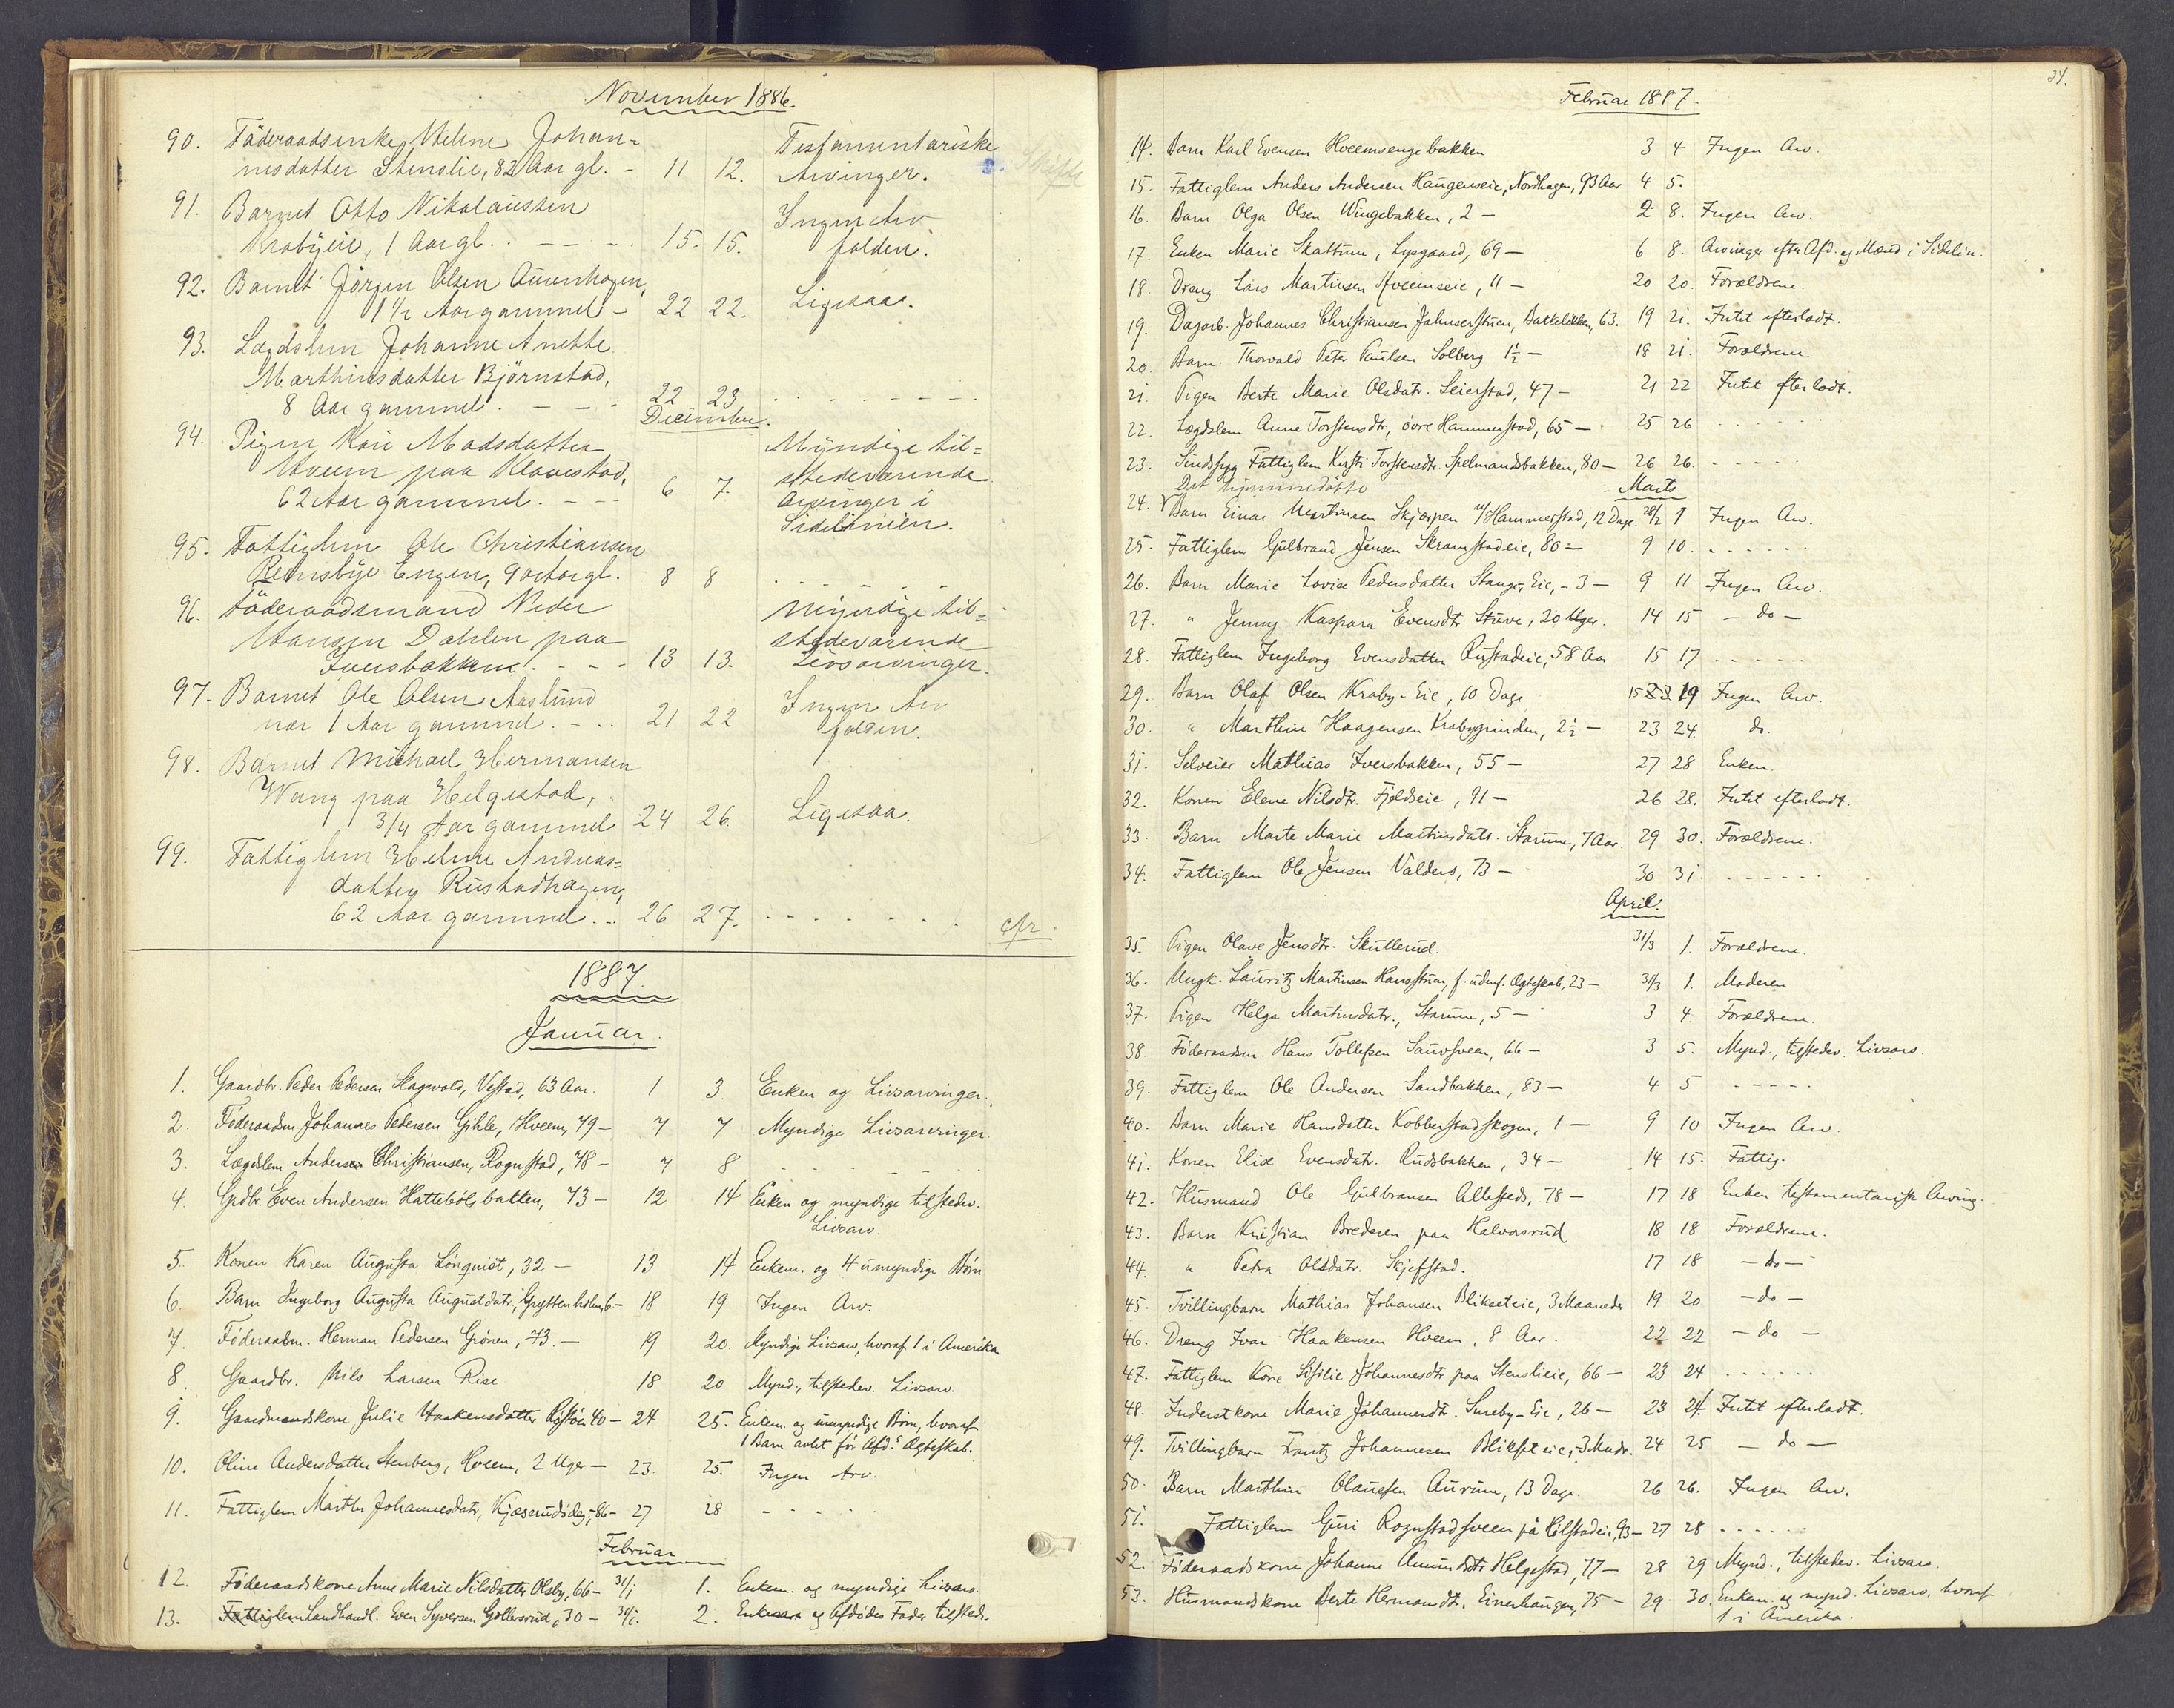 November 1886.
90. Föderaadsenke, Helene Johan=
nesdatter Stenslie, 82 Aar gl. - 11 12. Testamentariske
Arvinger.
91. Barnet Otto Nikolaissen
Krabyeie, 1 Aar gl. . - - - 15. 15. Ingen Arv
falden.
92. Barnet Jörgen Olsen Aurenhagen,
1 1/2 Aar gammel - 22 22. Ligesaa.
93. Lægdslem Johanne Anette
Marthinsdatter Björnstad,
8 Aar gammel. - - - 22 23 - - - - - - - -
December.
94. Pigen Kari Madsdatter
Hveem paa Klavestad,
62 Aar gammel. - - - 6 7. Myndige til=
stedeværende
Arvinger i
Sidelinien.
95. Fattiglem Ole Christiansen
Reinsbye Engen, 90 Aar gl. 8 8 - - - - -
96. Föderaadsmand Peder
Hansen Dahlen paa
Iversbakken. - - - 13 13. Myndige til=
stedeværende
Livsarvinger.
97. Barnet Ole Olsen Aaslund
nær 1 Aar gammel. - - . 21 22 Ingen Arv
falden.
98. Barnet Michael Hermansen
Wang paa Helgestad,
3/4 Aar gammel 24 26. Ligesaa.
99. Fattiglem Helene Andreas=
datter Rustadhagen,
62 Aar gammel. .. 26 27. - - - - - - cfr.
1887.
Januar.
1. Gaardbr. Peder Pedersen Skagevold, Vestad, 63 Aar. 1 3. Enken og Livsarvinger.
2. Föderaadsm. Johannes Pedersen Gihle, Hveem, 79 - 7 7 Myndige Livsarvinger.
3. Lægdslem Andersen Christiansen, Rognstad, 78 - 7 8 - - - - - -
4. Grdbr. Even Andersen Hattebölsbakken, 73 - 12 14. Enken og myndige tilstedev.
Livsarv.
5. Konen Karen Augusta Lönquist, 32 - 13 14. Enkem. og 4 umyndige Börn
6. Barn Ingeborg Augusta Augustdatr., Gryttenholm, 6 - 18 19 Ingen Arv.
7. Föderaadsm. Herman Pedersen Grönen, 73. - 19 20. Myndige Livsarv, hvoraf 1 i Amerika
8. Gaardbr. Nils Larsen Rise 18 20 Mynd., tilstedev. Livsarv.
9. Gaardmandskone Julie Haakensdatter 40 - 24 25. Enkem. og umyndige Börn, hvoraf
1 Barn avlet för Afd.s Ægteskab.
10. Oline Andersdatter Stenberg, Hveem, 2 Uger - 23. 25. Ingen Arv.
11. Fattiglem Marthe Johannesdatr, Kjæserudödeg., 86 - 27 28 - - - -
Februar
12. Föderaadskone Anne Marie Nilsdatter Olsby, 66 - 31/1 1. Enkem. og myndige Livsarv.
13. Fattiglem Landhandl. Even Syversen Gollersrud, 30 - 31/1. 2. Enken og Afdödes Fader tilsteds.
34.
Februar 1887.
14. Barn Karl Evensen Hveemsengebakken 3 4 Ingen Arv.
15. Fattiglem Anders Andersen Haugerseie, Nordhagen, 93 Aar 4 5.
16. Barn Olga Olsen Wingebakken, 2 - 2 8. Ingen Arv.
17. Enken Marie Skattum, Lysgaard, 69 - 6 8. Arvinger efter Afd. og Mand i Sidelin.
18. Dreng Lars Martinsen Hveemseie, 11 - 20 20. Forældrene.
19. Dagarb. Johannes Christiansen Jahnserstuen, Bakkelökken, 63. 19 21. Intet efterladt.
20. Barn Thorvald Peter Paulsen Solberg 1 1/2 - 18 21. Forældrene
21. Pigen Berte Marie Olsdatr. Seierstad, 47 - 21 22 Intet efterladt.
22. Lægdslem Anne Torstensdtr, övre Hammerstad, 65 - 25 26 - - - - -
23. Sindssyg Fattiglem Kirsti Torstensdtr. Spelmandsbakken, 80 - 26 26. - - - - -
Det hjemmedöbte Marts
24. Barn Einar Martinsen Skjæpen u/Hammerstad, 12 Dage. 28/2 1 Ingen Arv.
25. Fattiglem Gulbrand Jensen Skramstadeie, 80 - 9 10. - - - - - -
26. Barn Marie Lovise Pedersdatter Stange, Eie, - 3 - 9 11 Ingen Arv.
27. " Jenny Kaspara Evensdtr Stuve, 20 Uger. 14 15 - do -
28. Fattiglem Ingeborg Evensdatter Rustadeie, 58 Aar 15 17 - - - - - -
29. Barn Olaf Olsen Kraby-Eie, 10 Dage 15 19 Ingen Arv.
30. " Marthin Haagensen Krabygrinden, 2 1/2 - 23 24. do.
31. Selveier Mathias Iversbakken, 55 - 27 28 Enken.
32. Konen Elene Nilsdtr. Fjeldseie, 91 - 26 28. Intet efterladt.
33. Barn Marte Marie Martinsdatr. Starum, 7 Aar. 29 30. Forældrene.
34. Fattiglem Ole Jensen Valders, 73 - 30 31. - - - - - -
April.
35. Pigen Olave Jensdtr. Skutlerud. 31/3 1. Forældrene.
36. Ungk. Lauritz Martinsen Hansstuen, f. udenf. Ægteskab, 23 - 31/3 1. Moderen
37. Pigen Helga Martinsdatr., Starum, 5 - 3 4. Forældrene.
38. Föderaadsm. Hans Tollefsen Sauvsveen, 66 - 3 5. Mynd., tilstedev. Livsarv.
39. Fattiglem Ole Andersen Sandbakken, 83 - 4 5 - - - - -
40. Barn Marie Hansdatter Kobberstadskogen, 1 - 9 10 Ingen Arv.
41. Konen Elise Evensdatr. Rudsbakken, 34 - 14 15. Fattig.
42. Husmand Ole Gulbransen Allesteds, 78 - 17 18 Enken testamentarisk Arving.
43. Barn Kristian Bredesen paa Halvorsrud 18 18 Forældrene.
44. " Petra Olsdatr. Skjefstad. 17 18 - do -
45. Tvillingbarn Mathias Johansen Blikseteie, 3 Maaneder 19 20 - do -
46. Dreng Ivar Haakensen Hveem, 8 Aar. 22 22 - do -
47. Fattiglem Kone Sisilie Johannesdtr paa Stenslieie, 66 - 23 24 - - - - - -
48. Inderstkone Marie Johannesdtr. Sureby-Eie, 26 - 23 24. Intet efterladt.
49. Tvillingbarn Frantz Johannesen Blikseteie, 3 Mndr. 24 25 - do -
50. Barn Marthin Olaussen Aurum, 13 Dage. 26 26. Ingen Arv.
51. Fattiglem Guri Rognstadsveen på Kilstadeie, 93 - 27 28 - - - - - -
52. Föderaadskone Johanne Amundsdtr Helgestad, 77 - 28 29 Mynd., tilstedev. Livsarv.
53. Husmandskone Berte Hermandtr. Einerhaugen, 75 - 29 30. Enkem. og mynd. Livsarv. hvoraf
1 i Amerika.